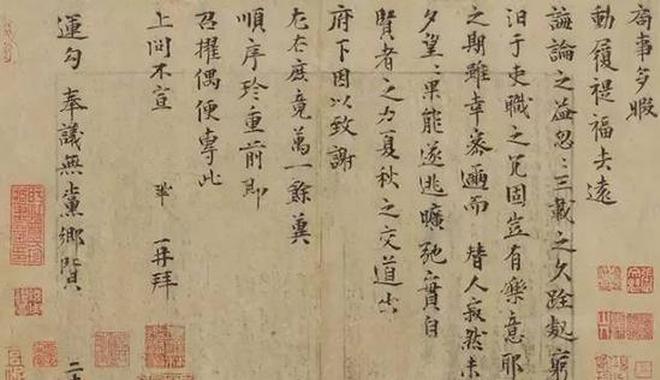 局事多暇
動履禔福去遠
誨論之益忽〻三載之久跧處窮
汩于吏職之冗固豈有樂意耶
之期雖幸密邇而替人寂然未
夕望〻果能遂逃曠弛實自
賢者之力夏秋之交道出
府下因以致謝
左右庶竟萬一餘冀
順序珍重前即
召擢偶便專此
上問不宣 鞏 再拜
運勾 奉議無黨鄉賢
二